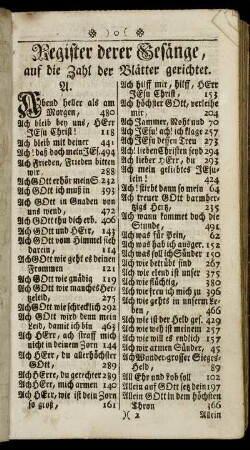 )o(
Register derer Gesänge,
auf die Zahl der Blätter gerichtet.
A.
Abend heller als am
Morgen, 480
Ach bleib bey uns, HErr
JEsu Christ! 118
Ach bleib mit deiner 441
Ach! daß doch mein JEsu, 493
Ach Frieden, Frieden bitten
wir. 288
Ach GOtt erhör mein S 232
Ach GOtt ich muß in 539
Ach GOtt in Gnaden von
uns wend, 472
Ach GOtt thu dich erb. 406
Ach GOtt und HErr, 143
Ach GOtt vom Himmel sieh
darein, 114
Ach GOtt wie geht es deinen
Frommen 121
Ach GOtt wie gnädig 1
Ach GOtt wie manches Her-
geleid, 275
Ach GOtt wie schrecklic 292
Ach GOtt wird denn mein
Leid, damit ich bin 463
Ach HErr, ach straff mich
nicht in deinem Zorn 144
Ach HErr, du allerhöchster
GOtt, 289
Ach HErr, du gerechter 289
Ach HErr, mich armen 140
Ach HErr, wie ist dein Zorn
so groß, 161
Ach hilff mir, hilff, HErr
JEsu Christ, 153
Ach höchster GOtt, verleihe
mir, 197
Ach Jammer, Noht und 70
Ach JEsu! ach! ich klage 257
Ach JEsu dessen Treu 273
Ach lieben Christen seyd 204
Ach lieber HErr, du 393
Ach meines geliebten JEsu-
lein! 24
Ach! stirbt denn so mein 64
Ach treuer GOtt barmher-
tzigs Hertz, 235
Ach wann kommet doch die
Stunde, 491
Ach was für Pein, 62
Ach was hab ich ausger. 152
Ach was soll ich Sünder 150
Ach wie betrübt sind 267
Ach wie elend ist unser 395
Ach wie flüchtig, 375
Ach wie freu ich mich zu 396
Ach wie gehts in unserm Le-
ben, 466
Ach wie ist der Welt gem. 259
Ach wie weh ist meinem 257
Ach wie will es endlich 157
Ach wir armen Sünder, 45
Ach Wunder-grosser Sieges-
Held, 89
All Ehr und Lob soll 102
Allein auf GOtt setz dein 197
Allein GOtt in dem höchsten
Thron 366
)( 2 Allein